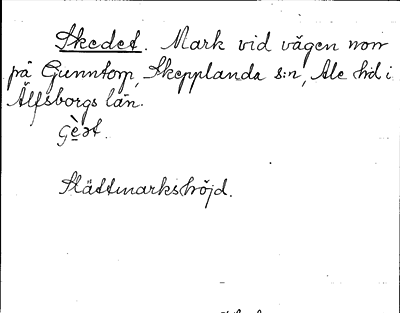 Skedet. Mark vid vägen norr
på Gunntorp, Skepplanda s:n, Ale hd i
Älfsborgs län.
Slättmarkshöjd.